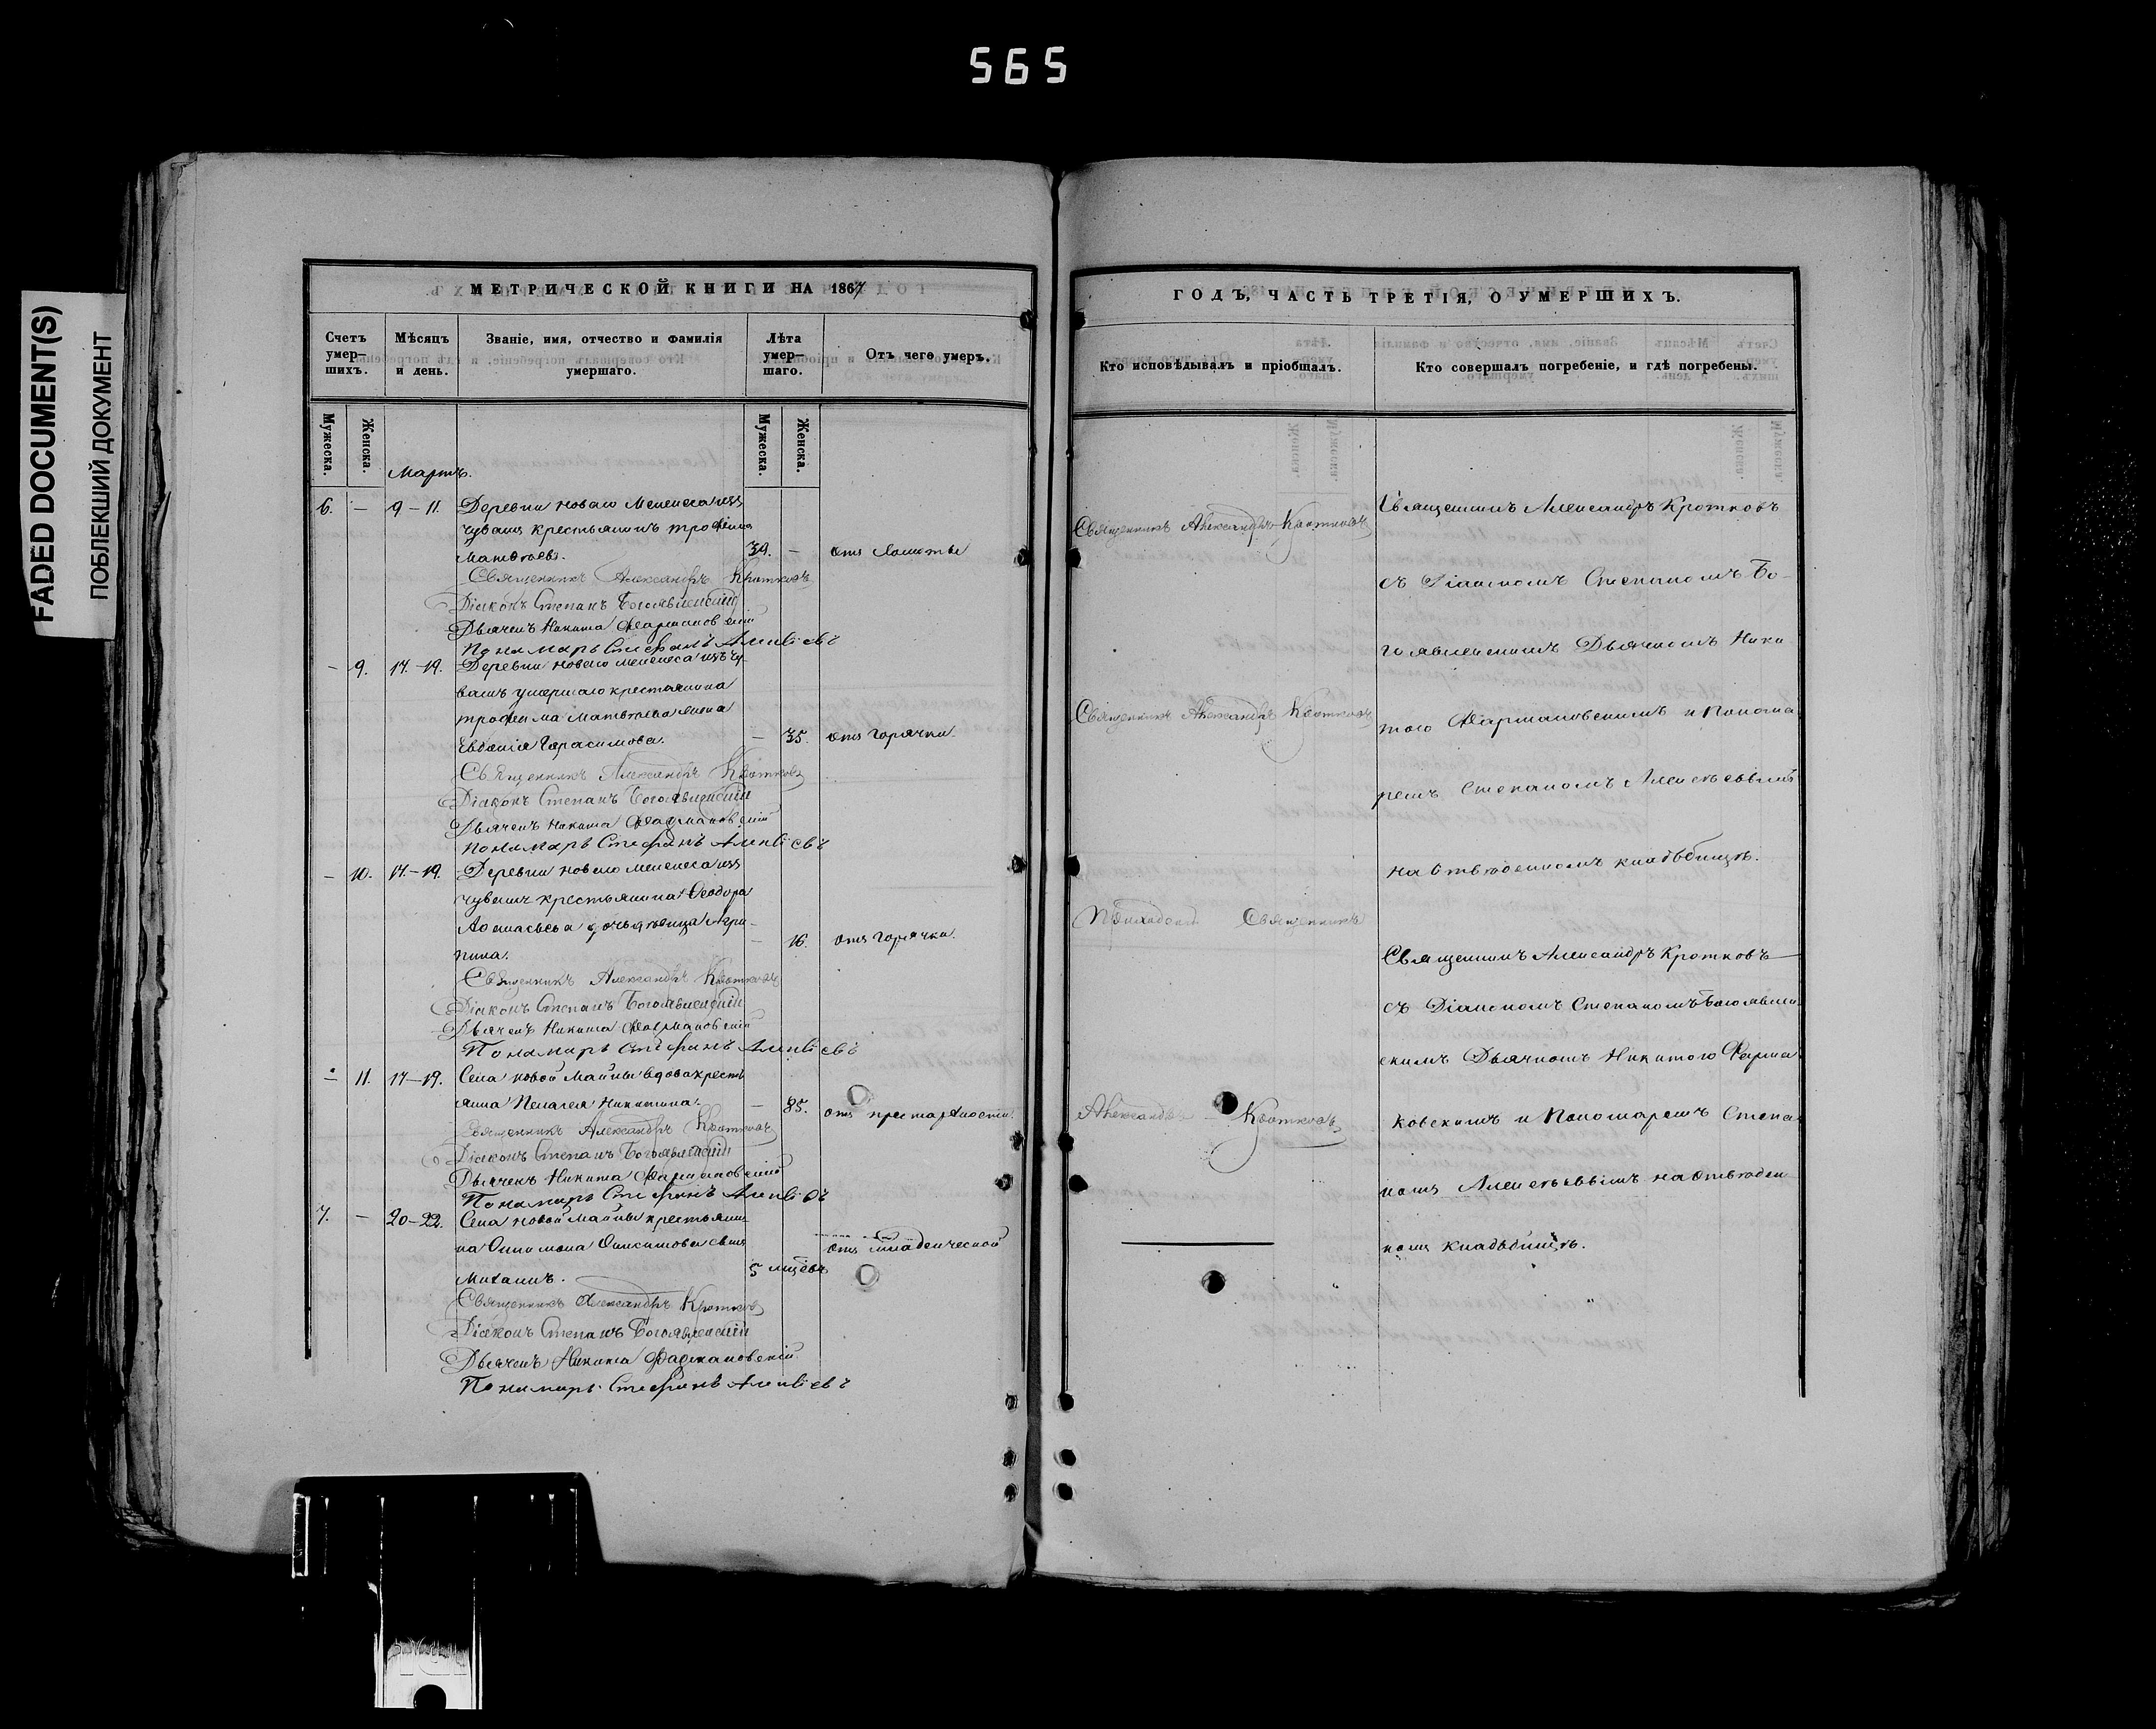 565
FADED DOCUMENT(S)
ПОБЛЕКШИЙ ДОКУМЕНТ
МЕТРИЧЕСКОЙ КНИГИ НА 1867
Счетъ умер-шихъ.
Мѣсяцъ и день.
Званіе, имя, отчество и фамилія умершаго.
Лѣта умер-шаго.
Отъ чего умеръ.
Мужеска.
Женска.
Мужеска.
Женска.
Мартъ.
6. — 9-11. Деревни новаго Мелекеса изъ
чувашъ крестьянинъ трофимъ
Матвѣевъ. 39. — отъ ломоты
Священникъ Александръ Кротковъ
Діаконъ Степанъ Богоявленскій
Дьячекъ Никита Фармаковскій
Пономарь Стефанъ
— 9. 17.-19. Деревни новаго мелекеса изъ чу-
вашъ умершаго крестьянина
трофима Матвѣева жена
Евдокія Герасимова. — 35. отъ горячки.
Священникъ Александръ Кротковъ
Діаконъ Степанъ Богоявленскій
Дьячекъ Никита Фармаковскій
Пономарь Стефанъ
— 10. 17.-19. Деревни новаго мелекеса изъ
чувашъ крестьянина Ѳеодора
Аѳанасьева дочь дѣвица Агри-
пина. — 16. отъ горячки.
Священникъ Александръ Кротковъ
Діаконъ Степанъ Богоявленскій
Дьячекъ Никита Фармаковскій
Пономарь Стефанъ
— 11. 17-19. Села новой Майны вдова кресть
янка Пелагея Никитина. — 85. отъ престарѣлости.
Священникъ Александръ Кротковъ
Діаконъ Степанъ Богоявленскій
Дьячекъ Никита Фармаковскій
Пономарь Стефанъ
7. — 20-22. Села новой Майны крестьяни-
на сынъ
Михаилъ. 5 отъ младенческой
Священникъ Александръ Кротковъ
Діаконъ Степанъ Богоявленскій
Дьячекъ Никита Фармаковскій
Пономарь Стефанъ
ГОДЪ, ЧАСТЬ ТРЕТІЯ, О УМЕРШИХЪ.
Кто исповѣдывалъ и пріобщалъ.
Кто совершалъ погребеніе, и гдѣ погребены.
Священникъ Александръ Кротковъ
Священникъ Александръ Кротковъ
Священникъ
Александръ Кротковъ
Священникъ Александръ Кротковъ
съ Діакономъ Степаномъ Бо-
гоявленскимъ Дьячкомъ Ники
тою Фармаковскимъ и Понома
ремъ Степаномъ Алексѣевымъ
на отведенномъ кладбищѣ.
Священникъ Александръ Кротковъ
съ Діакономъ Степаномъ Богоявлен
скимъ Дьячкомъ Никитою Фарма
ковскимъ и Пономаремъ Степа
номъ Алексѣевымъ на отведен
номъ кладбищѣ.